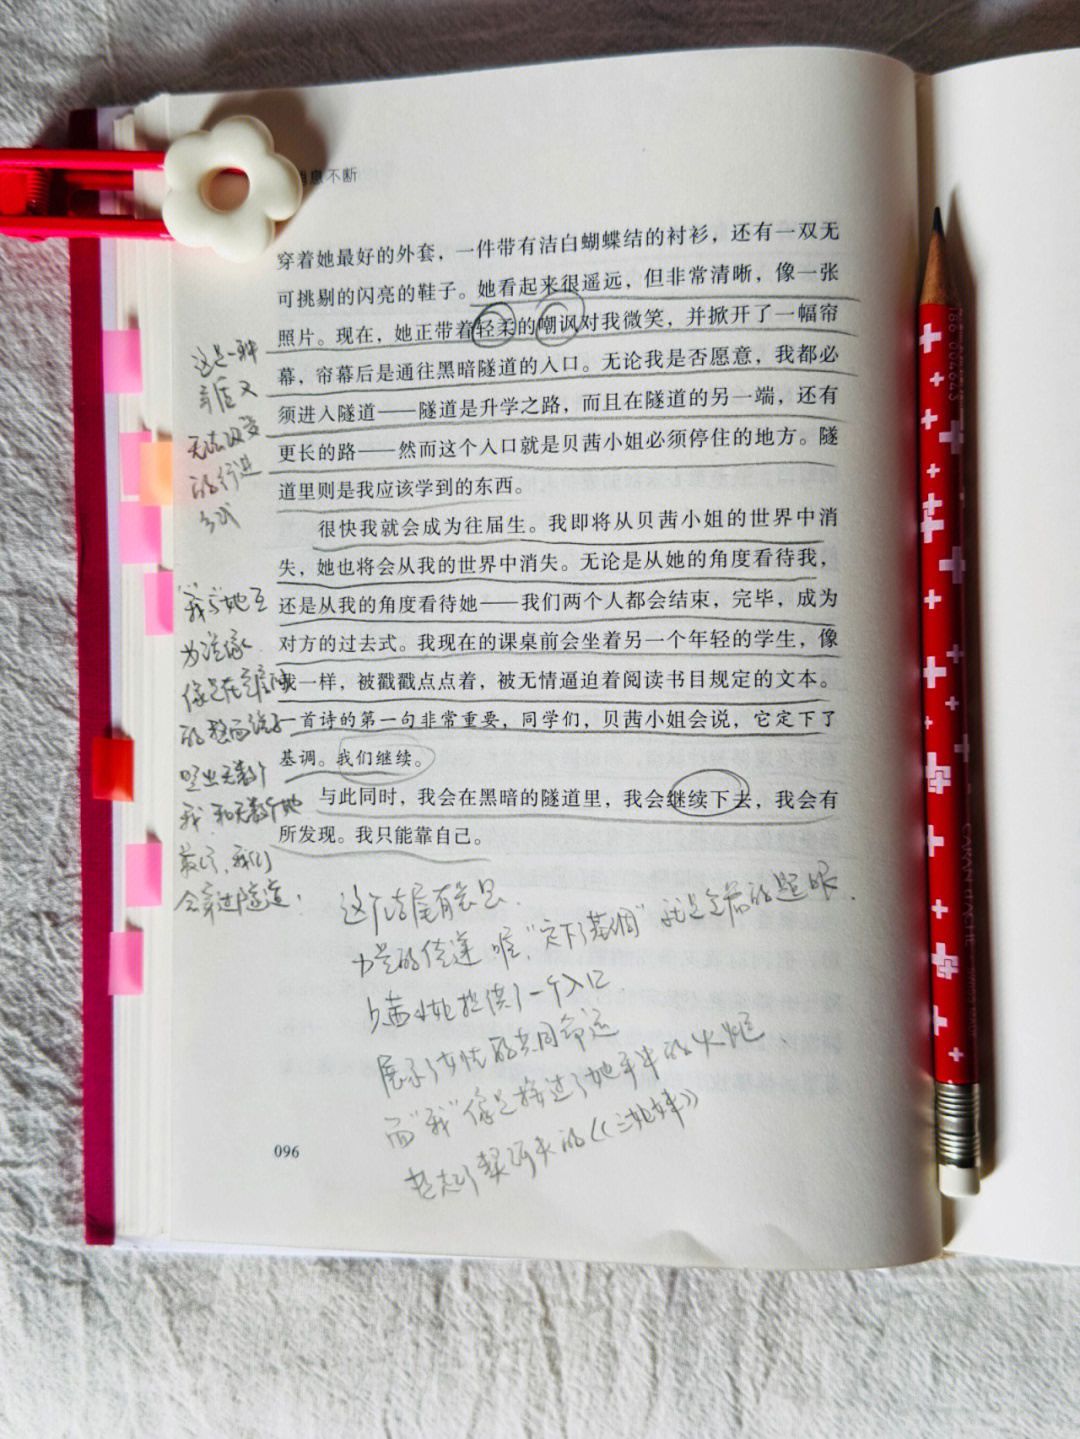 息不断
穿着她最好的外套，一件带有洁白蝴蝶结的衬衫，还有一双无
可挑剔的闪亮的鞋子。她看起来很遥远，但非常清晰，像一张
照片。现在，她正带着轻柔的嘲讽对我微笑，并掀开了一幅帘
幕，帘幕后是通往黑暗隧道的入口。无论我是否愿意，我都必
须进入隧道——隧道是升学之路，而且在隧道的另一端，还有
更长的路——然而这个入口就是贝茜小姐必须停住的地方。隧
道里则是我应该学到的东西。
很快我就会成为往届生。我即将从贝茜小姐的世界中消
失，她也将会从我的世界中消失。无论是从她的角度看待我，
还是从我的角度看待她——我们两个人都会结束，完毕，成为
对方的过去式。我现在的课桌前会坐着另一个年轻的学生，像
我一样，被戳戳点点着，被无情逼迫着阅读书目规定的文本。
一首诗的第一句非常重要，同学们，贝茜小姐会说，它定下了
基调。我们继续。
与此同时，我会在黑暗的隧道里，我会继续下去，我会有
所发现。我只能靠自己。
这是一种
盲目又
无法改变
的行进
方式
"我"与"她"互
为
像是在
的
出无数个
我和无数个她
最后，我们
会穿过隧道。
这个结尾有
力量的传递呢，"定下了基调"就是全篇的题眼．
贝茜小姐提供了一个入口
展示了女性的共同命运
而"我"像是接过了她手中的火炬
想起了契诃夫的《三姐妹》
096
CARAN D'ACHE